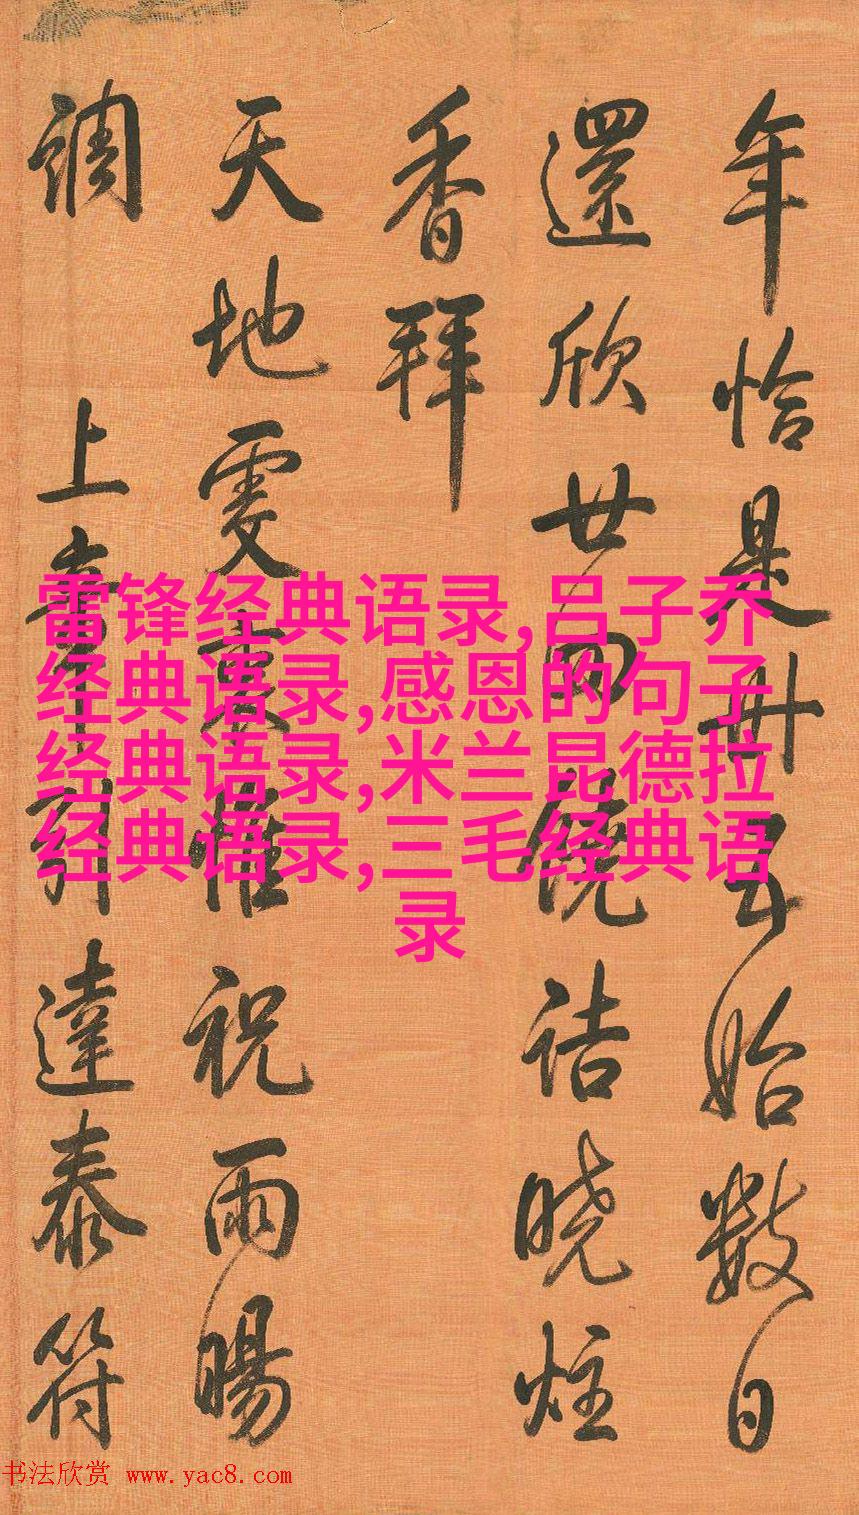 年恰是卅五始數日
還欣廿四饒詰曉炷
香拜
天地虔衷惟祝雨暘
調 上辛引達泰符
雷锋经典语录,吕子乔
经典语录,感恩的句子
经典语录,米兰昆德拉
经典语录,三毛经典语
录
书法欣赏 www.yac8.com